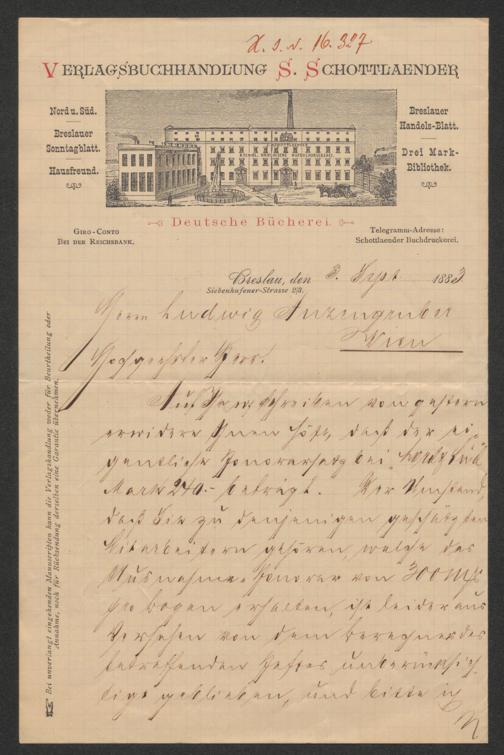 H. I. N. 16.327
VERLAGSBUCHHANDLUNG S. SCHOTTLAENDER
Nord u. Süd.
Breslauer
Sonntagblatt.
Hausfreund.
Breslauer
Handels-Blatt.
Drei Mark-
Bibliothek.
Deutsche Bücherei.
GIRO-CONTO
BEI DER REICHSBANK.
Telegramm-Adresse:
Schottlaender Buchdruckerei.
Breslau, den 3. Sept 1883
Siebenhufener-Strasse 2/3.
Herrn Ludwig Anzengruber
Wien
Hochgeehrter Herr.
Auf Ihr Schreiben von gestern
erwidere Ihnen höfl, daß der ei-
gentliche Honorarsatz bei "Nord & Süd"
Mark 240.- beträgt. Der Umstand,
daß Sie zu denjenigen geschätzten
Mitarbeitern gehören, welche das
Ausnahme-Honorar von 300 Mk
pro Bogen erhalten, ist leider aus
Versehen von dem Berechner des
betreffenden Heftes unberücksich-
tigt geblieben, und bitte ich
Bei unverlangt eingehenden Manuscripten kann die Verlagshandlung weder für Beurtheilung oder
Annahme, noch für Rücksendung derselben eine Garantie übernehmen.